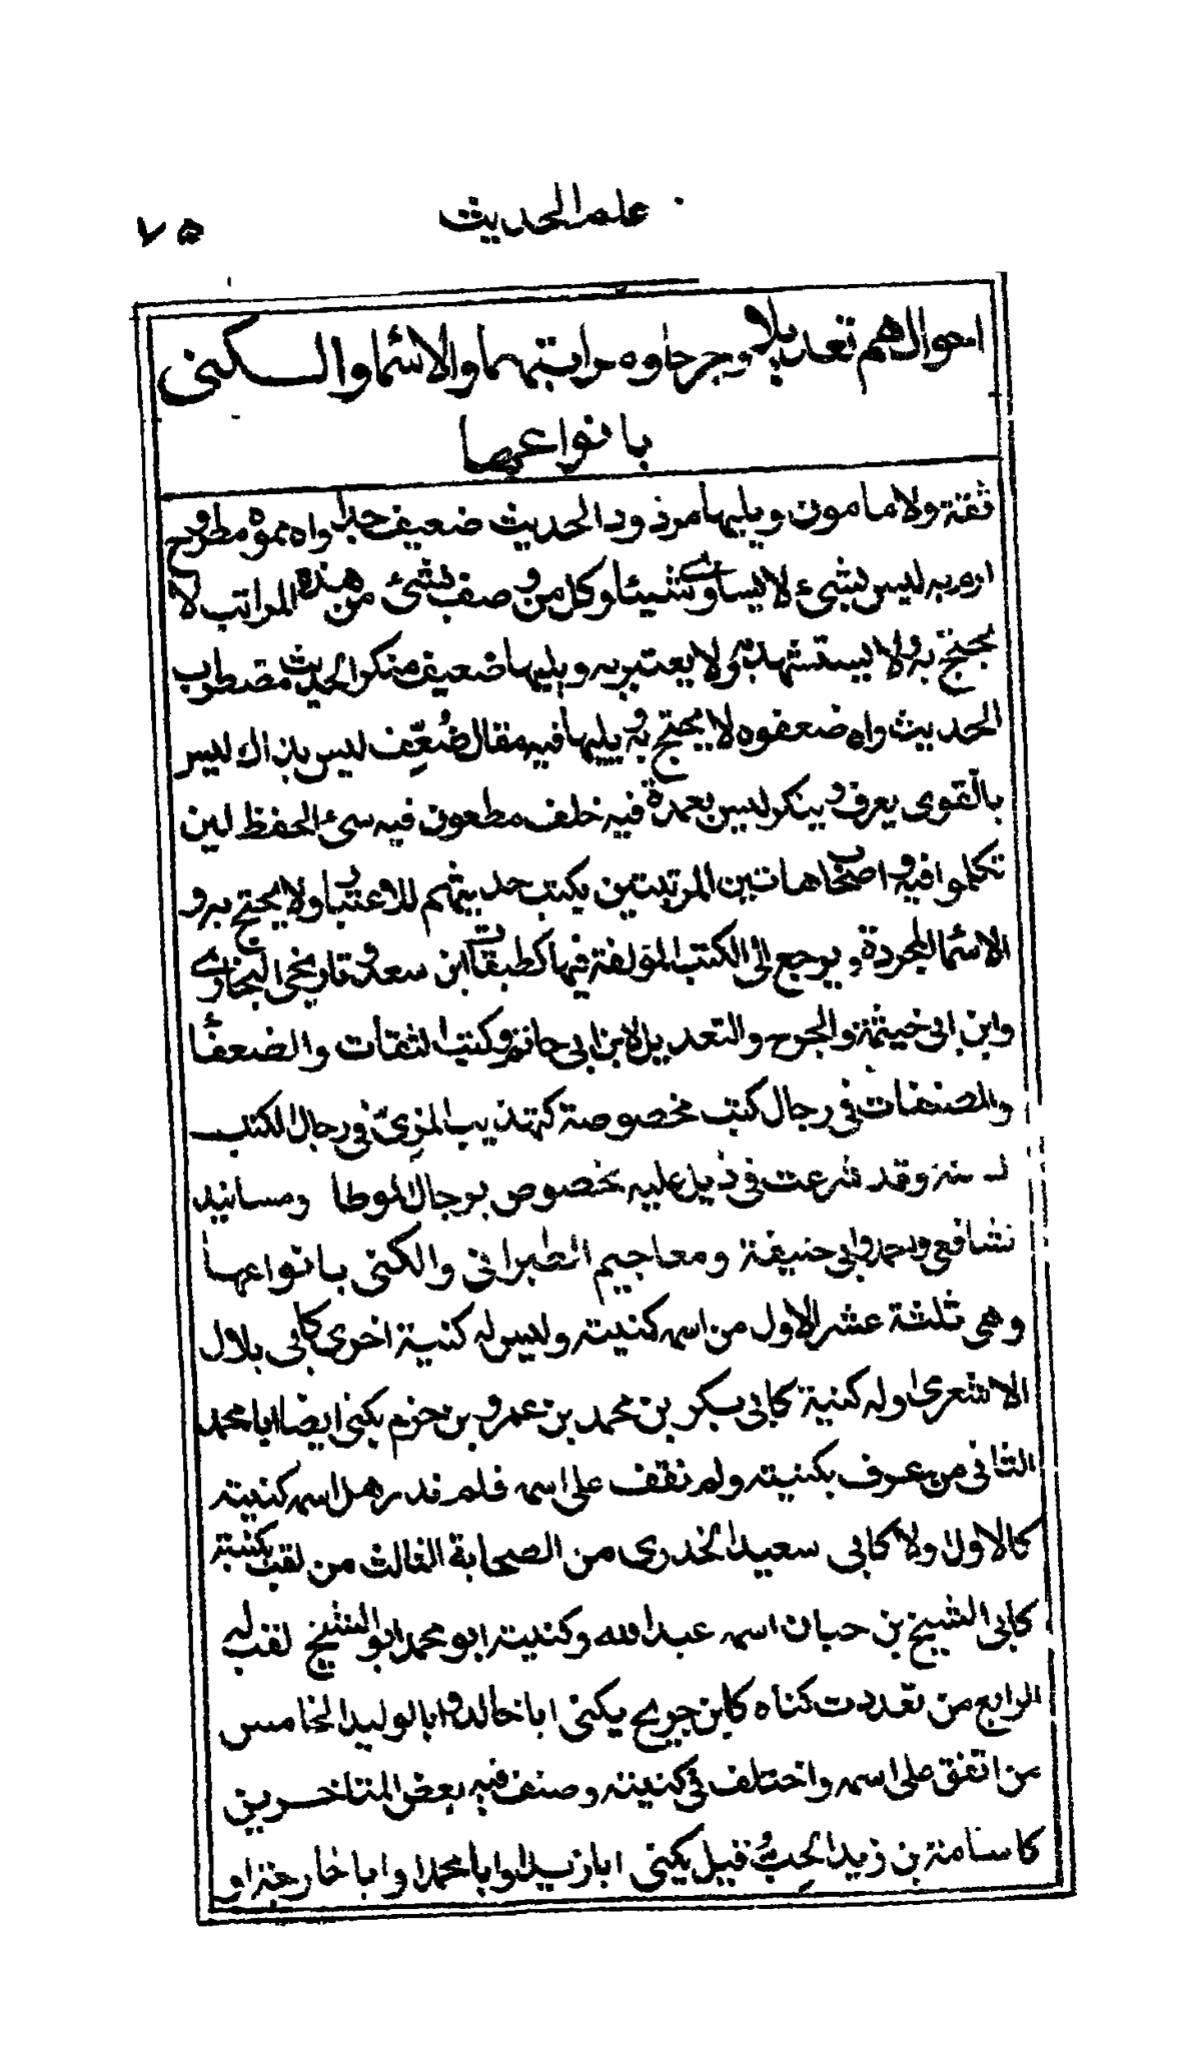 علم الحديث
٧٥
احوالهم تعديلا وجرحا وه مراتبهما والاسما والكنى
بانواعها
ثقة ولا مامون ويليها مردود الحديث ضعيف جدا واه بموه مطروح
ارم به ليس بشيء لا يساوي شيئا وكل من وصف بشئ من هذه المراتب لا
يحتج به ولا يستشهد به ولا يعتبر به ويليها ضعيف منكر الحديث مضطرب
الحديث واه ضعفوه لا يحتج به ويليها فيه مقال ضُعِّف ليس بذاك ليس
بالقوى يعرف وينكر ليس بعمدة فيه خلف مطعون فيه سئ الحفظ لين
تكلموا فيه و اصحاب هاتين المرتبتين يكتب حديثهم للاعتبار ولا يحتج به و
الاسما المجردة ويرجع الى الكتب المؤلفة فيها كطبقات ابن سعد وتاريخى البخاري
وابن ابى خيثمة والجرح والتعديل لابن ابى حاتم وكتب الثقات والضعفا
والمصنفات فى رجال كتب مخصوصة كتهذيب المزىّ فى رجال الكتب
لـ ستة وقد شرعت فى ذيل عليه مخصوص برجال الموطا ومسانيد
شافعى وحمد وابى حنيفة ومعاجيم الطبرانى والكنى بانواعها
وهى ثلثة عشر الاول من اسمه كنيته وليس له كنية اخرى كابى بلال
الاشعرى او له كنية كابى بكر بن محمد بن عمرو بن حزم يكنى ايضا ابا محمد
الثانى من عرف بكنيته ولم نقف على اسمه فلم ندر هل اسمه كنيته
كالاول او لا كابى سعيد الخدرى من الصحابة الثالث من لقب بكنيته
كابى الشيخ بن حبان اسمه عبد الله وكنيته ابو محمد ابو الشيخ لقب له
الرابع من تعددت كناه كابن جريج يكنى ابا خالد وابا لوليد الخامس
من اتفق على اسمه واختلف فى كنيته وصنف فيه بعض المتاخرين
كاسامة بن زيد الحِبُّ قيل يكنى ابا زيد او ابا محمد او ابا خارجة او